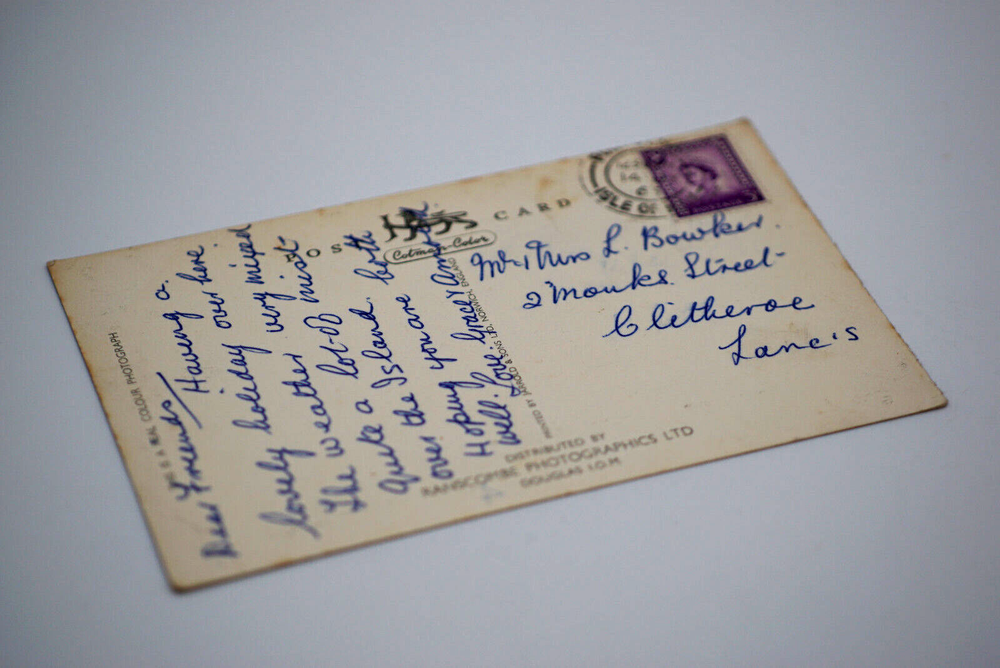 THIS IS A REAL COLOUR PHOTOGRAPH
POST CARD
Cotman-Color
Dear Friends
Having a
lovely holiday over here
The weather very mixed
Quite a lot of mist
over the Island
Hoping you are both
well. Love. Grace
PRINTED BY JARROLD & SONS LTD, NORWICH, ENGLAND
ISLE OF
Mr & Mrs L. Bowker.
2 Monks. Street
Clitheroe
Lanc's
DISTRIBUTED BY
RANSCOMBE PHOTOGRAPHICS LTD
DOUGLAS I.O.M.